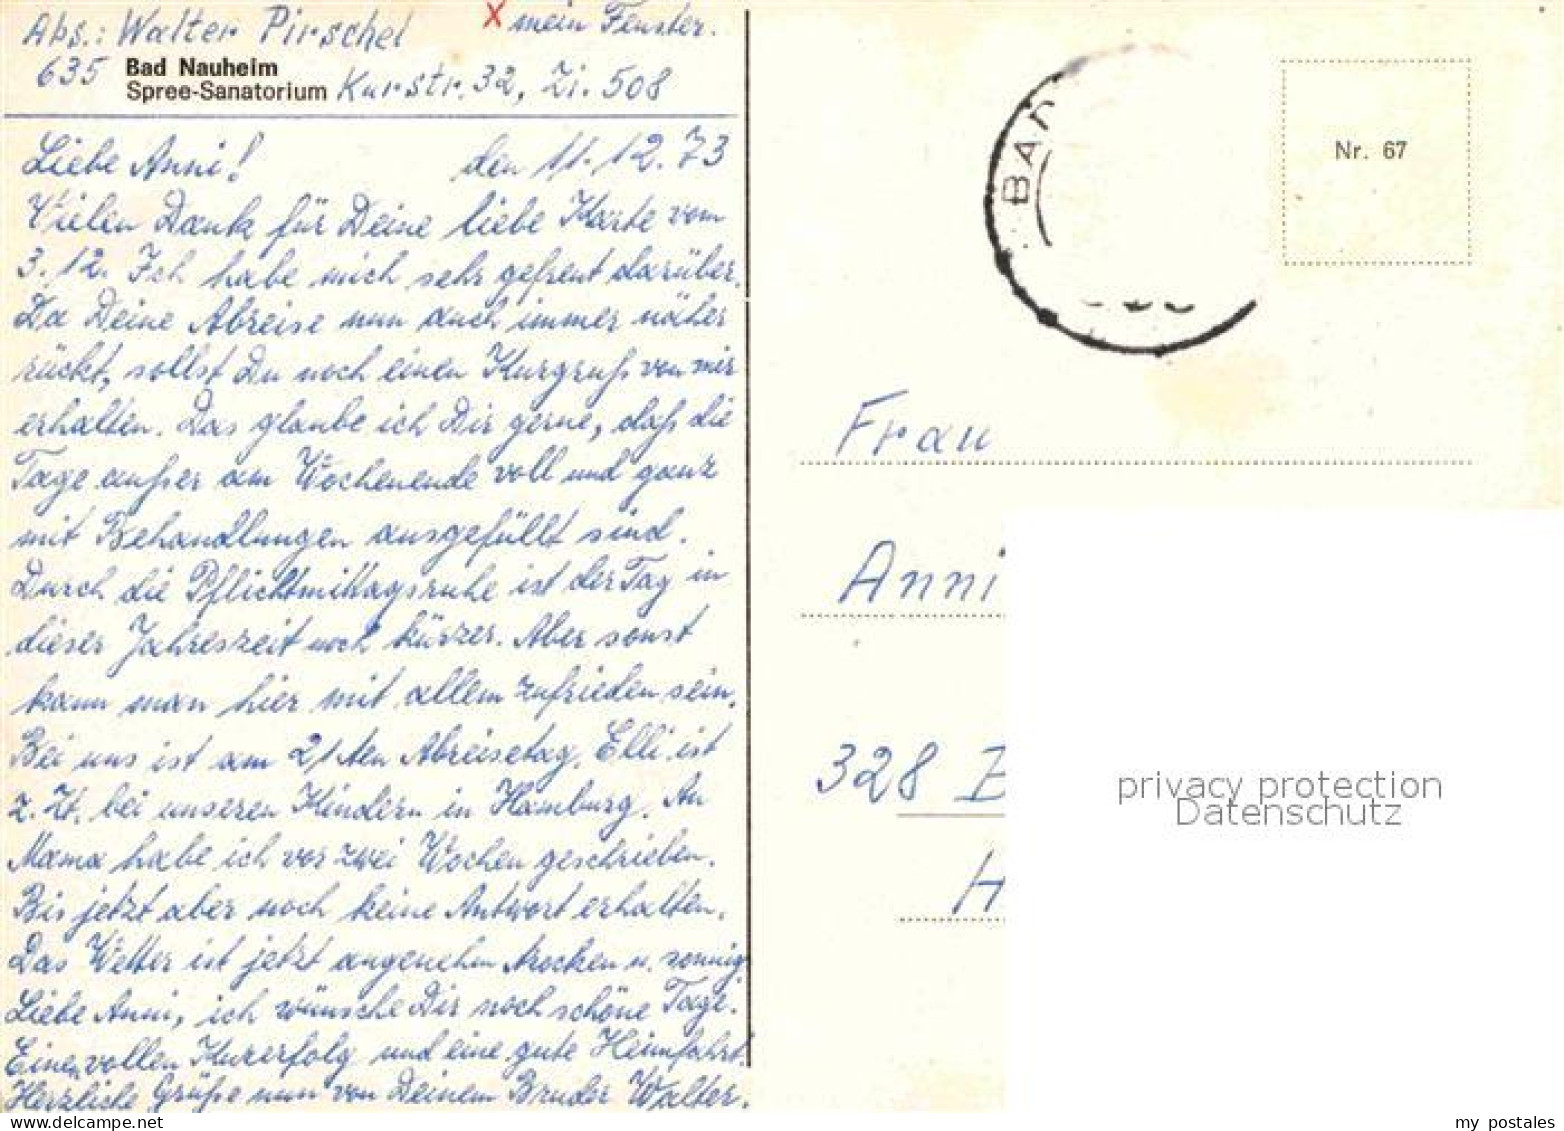 Abs.: Walter Pirschel
X mein Fenster.
635 Bad Nauheim
Spree-Sanatorium Kurstr. 32, Zi. 508
Liebe Anni! den 11.12.73
Vielen Dank für Deine liebe Karte vom
3.12. Ich habe mich sehr gefreut darüber.
Da Deine Abreise nun auch immer näher
rückt, sollst Du noch einen Kurgruß von mir
erhalten. Das glaube ich Dir gerne, daß die
Tage außer am Wochenende voll und ganz
mit Behandlungen ausgefüllt sind.
Durch die Pflichtmittagsruhe ist der Tag in
dieser Jahreszeit noch kürzer. Aber sonst
kann man hier mit allem zufrieden sein.
Bei uns ist am 21ten Abreisetag. Elli ist
z. Zt. bei unseren Kindern in Hamburg. An
Mama habe ich vor zwei Wochen geschrieben.
Bis jetzt aber noch keine Antwort erhalten.
Das Wetter ist jetzt angenehm trocken u. sonnig
Liebe Anni, ich wünsche Dir noch schöne Tage.
Einen vollen Kurerfolg und eine gute Heimfahrt.
Herzliche Grüße nun von Deinem Bruder Walter.
BAD
Nr. 67
Frau
Anni
328 B
H
privacy protection
Datenschutz
delcampe.net
my_postales